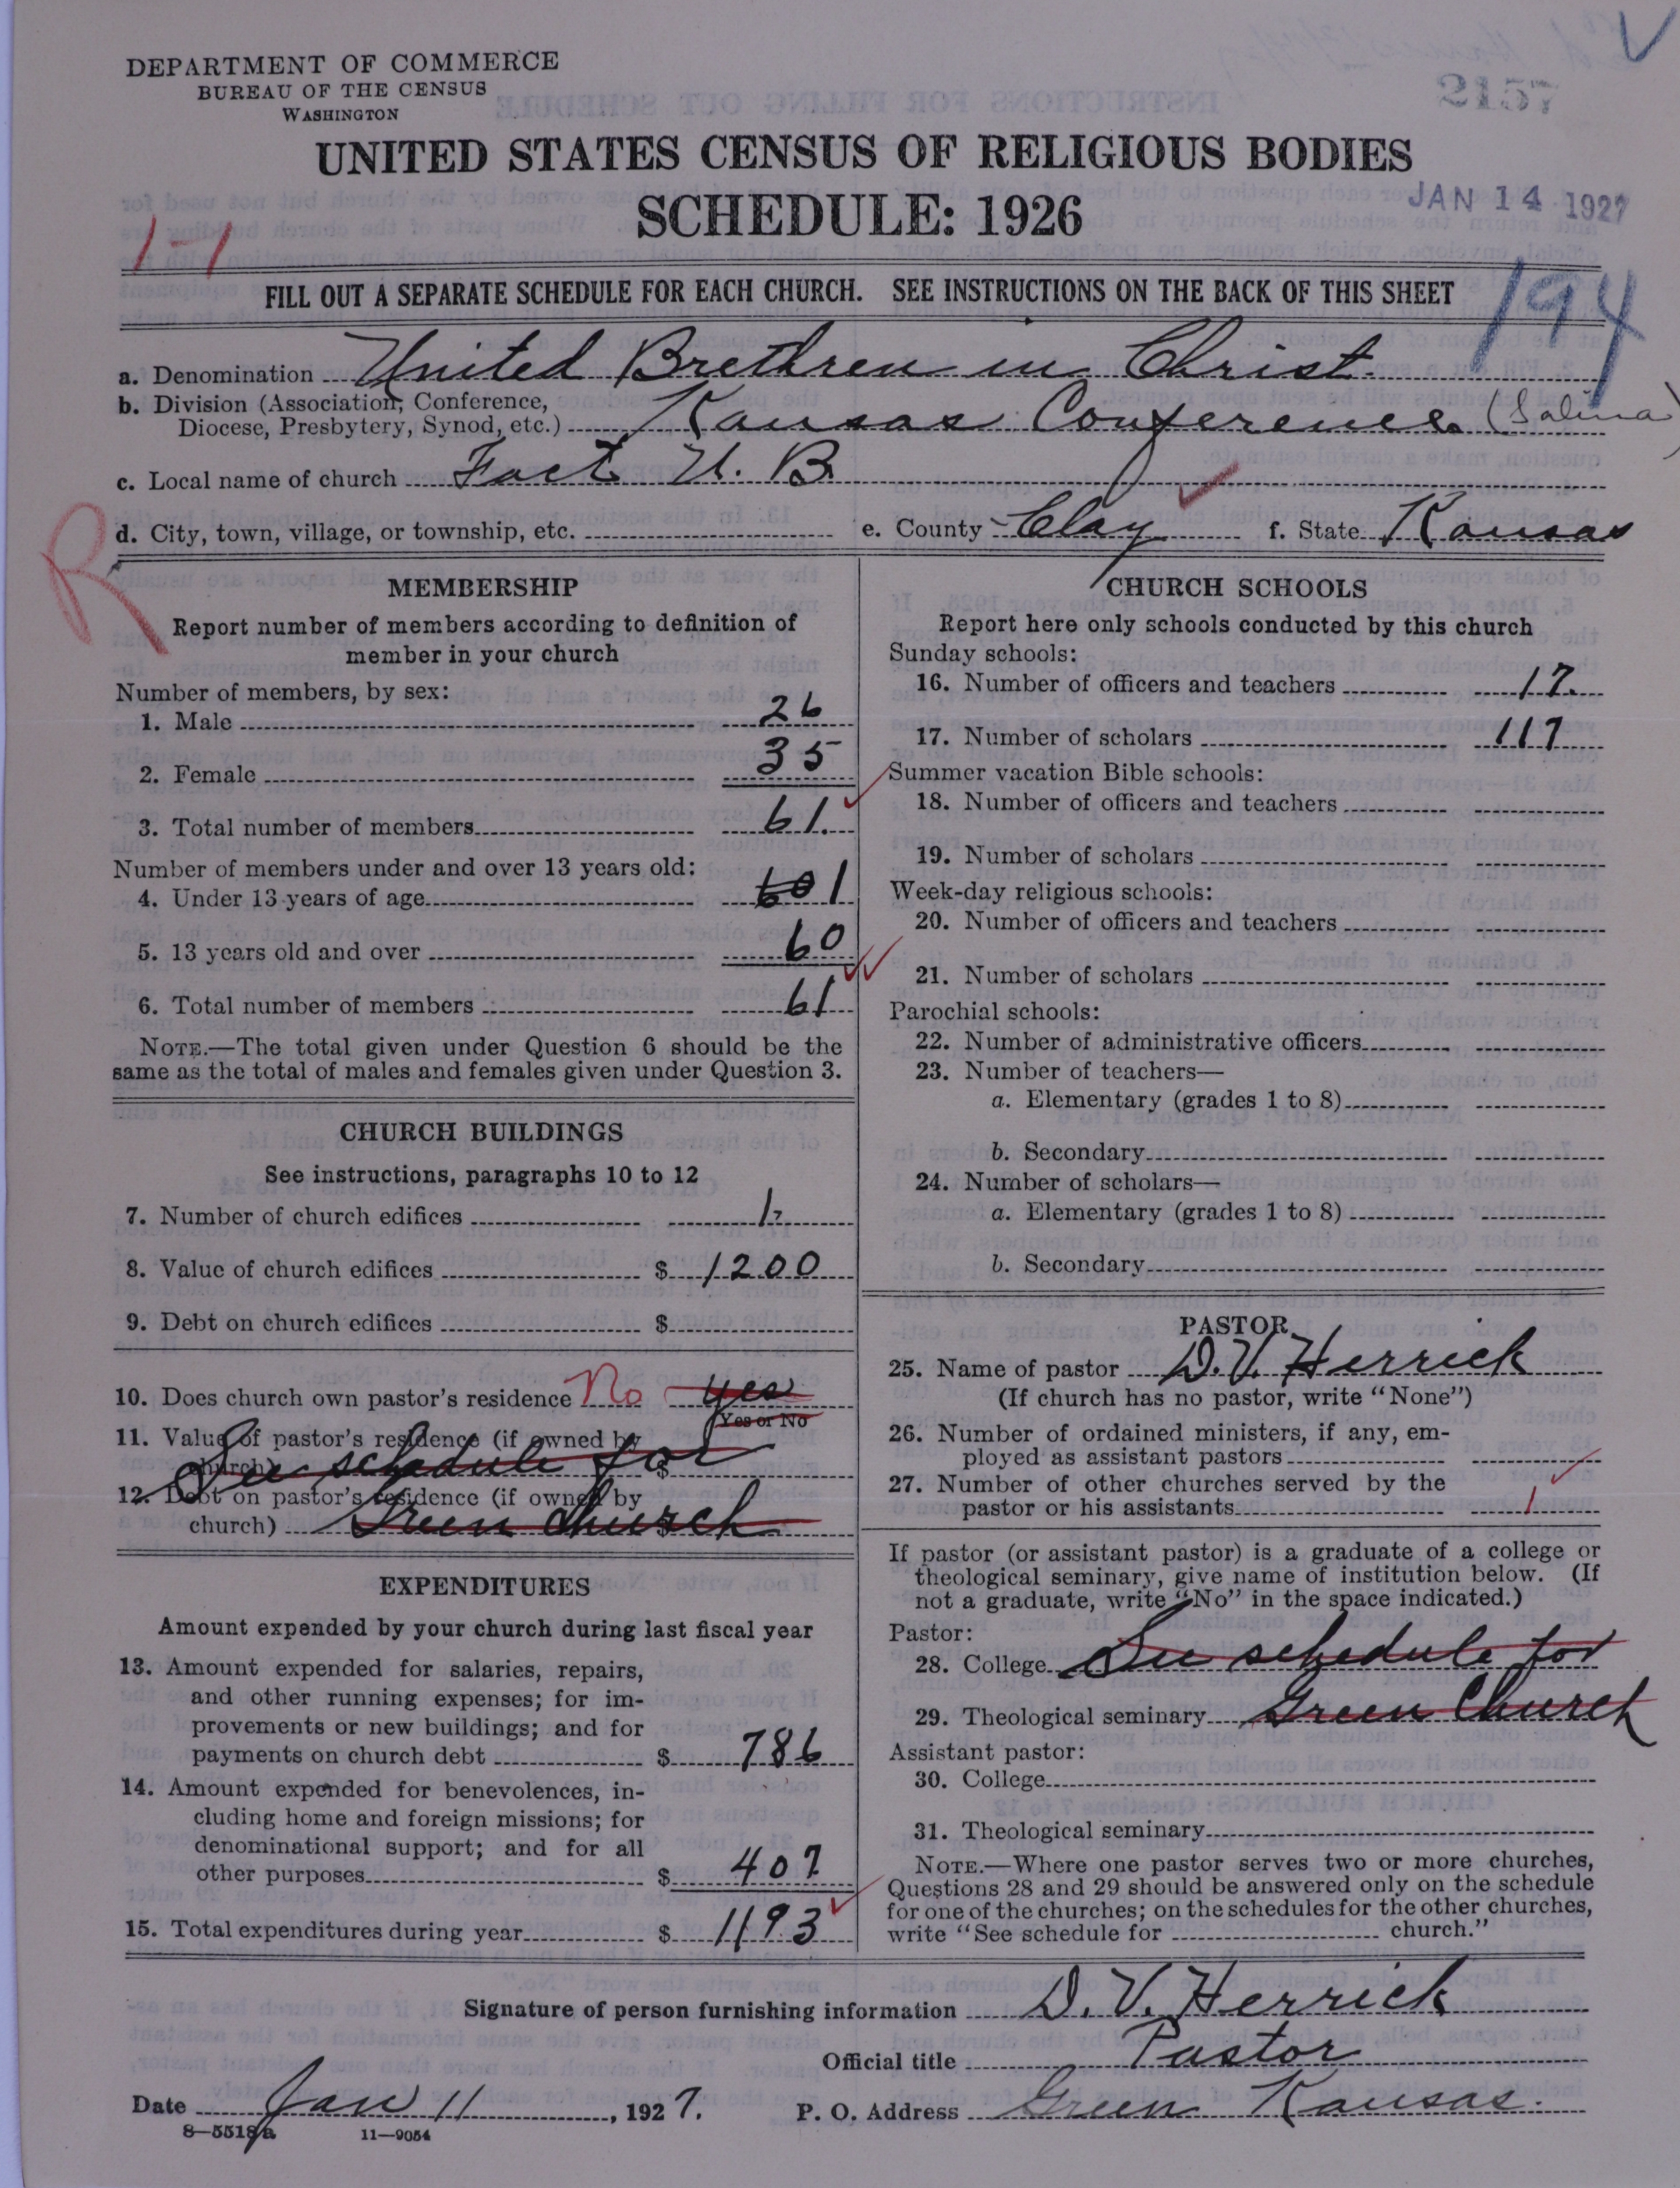 DEPARTMENT OF COMMERCE
BUREAU OF THE CENSUS
WASHINGTON
2157
UNITED STATES CENSUS OF RELIGIOUS BODIES
SCHEDULE: 1926
JAN 14 1927
1-1
FILL OUT A SEPARATE SCHEDULE FOR EACH CHURCH. SEE INSTRUCTIONS ON THE BACK OF THIS SHEET
194
a. Denomination United Brethren in Christ.
b. Division (Association, Conference,
Diocese, Presbytery, Synod, etc.) Kansas Conference (Salina)
c. Local name of church Fact U. B.
d. City, town, village, or township, etc. e. County Clay f. State Kansas
R
MEMBERSHIP
Report number of members according to definition of
member in your church
Number of members, by sex:
1. Male 26
2. Female 35
3. Total number of members 61.
Number of members under and over 13 years old:
4. Under 13 years of age 60 1
5. 13 years old and over 60
6. Total number of members 61
NOTE.—The total given under Question 6 should be the
same as the total of males and females given under Question 3.
CHURCH BUILDINGS
See instructions, paragraphs 10 to 12
7. Number of church edifices 1
8. Value of church edifices $ 1200
9. Debt on church edifices $
10. Does church own pastor's residence No yes
Yes or No
11. Value of pastor's residence (if owned by
church) $ See schedule for
12. Debt on pastor's residence (if owned by
church) $ Green Church
EXPENDITURES
Amount expended by your church during last fiscal year
13. Amount expended for salaries, repairs,
and other running expenses; for im-
provements or new buildings; and for
payments on church debt $ 786
14. Amount expended for benevolences, in-
cluding home and foreign missions; for
denominational support; and for all
other purposes $ 407
15. Total expenditures during year $ 1193
CHURCH SCHOOLS
Report here only schools conducted by this church
Sunday schools:
16. Number of officers and teachers 17.
17. Number of scholars 117
Summer vacation Bible schools:
18. Number of officers and teachers
19. Number of scholars
Week-day religious schools:
20. Number of officers and teachers
21. Number of scholars
Parochial schools:
22. Number of administrative officers
23. Number of teachers—
a. Elementary (grades 1 to 8)
b. Secondary
24. Number of scholars—
a. Elementary (grades 1 to 8)
b. Secondary
PASTOR
25. Name of pastor D. V. Herrick
(If church has no pastor, write "None")
26. Number of ordained ministers, if any, em-
ployed as assistant pastors
27. Number of other churches served by the
pastor or his assistants 1
If pastor (or assistant pastor) is a graduate of a college or
theological seminary, give name of institution below. (If
not a graduate, write "No" in the space indicated.)
Pastor:
28. College See schedule for
29. Theological seminary Green Church
Assistant pastor:
30. College
31. Theological seminary
NOTE.—Where one pastor serves two or more churches,
Questions 28 and 29 should be answered only on the schedule
for one of the churches; on the schedules for the other churches,
write "See schedule for church."
Signature of person furnishing information D. V. Herrick
Official title Pastor
Date Jan 11, 1927. P. O. Address Green Kansas.
8—5518a 11—9054